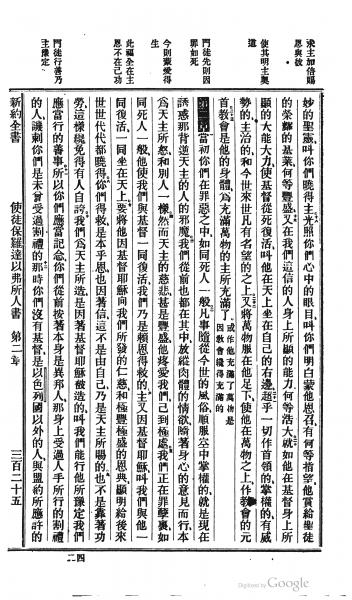 求主加倍賜
恩與彼
使其明主奧
道
門徒先則因
罪如死
今則蒙愛得
生
此福全在主
恩不在己功
門徒行善乃
主豫定
妙的聖靈叫你們曉得主光照你們心中的眼目叫你們明白蒙他恩召有何等指望他賞給聖徒
的榮耀的基業何等豐盛又在我們這信的人身上所顯的能力何等浩大就如他在基督身上所
顯的大能大力使基督從死復活叫他在天上坐在自己的右邊超乎一切作首領的掌權的有威
勢的主治的和今世來世凡有名望的之上又將萬物服在他足下使他在萬物之上作教會的元
首教會是他的身體爲充滿萬物的主所充滿了
或作他充滿了萬物是
因教會纔得充滿的
第二章當初你們在罪惡之中如同死人一般凡事隨從今世的風俗順服空中掌權的就是現在
誘惑那背逆天主的人的邪魔我們從前也都在其中放縱肉體的情欲隨著身心的意見而行本
爲天主所怒和別人一樣然而天主的慈悲甚是豐盛他疼愛我們己到極處我們正在罪孽裏如
同死人一般他使我們與基督一同復活我們乃是賴恩得救的主又因基督耶穌叫我們與他一
同復活一同坐在天上要將他因基督耶穌向我們所發的仁慈和極豐極盛的恩典顯明給後來
世世代代都曉得你們得救是本乎恩也因著信這不是由自己乃是天主所賜的也不是靠著功
勞這樣纔免得有人自誇我們爲天主所造是因基督耶穌蒙造的叫我們能行他所豫定我們
應當行的善事所以你們應當記念你們從前按著本身是異邦人那身上受過人手所行的割禮
的人譏刺你們是未曾受過割禮的那時你們沒有基督是以色列國以外的人與盟約所應許的
新約全書 使徒保羅達以弗所人書 第二章 三百二十五
四二
Digitized by Google